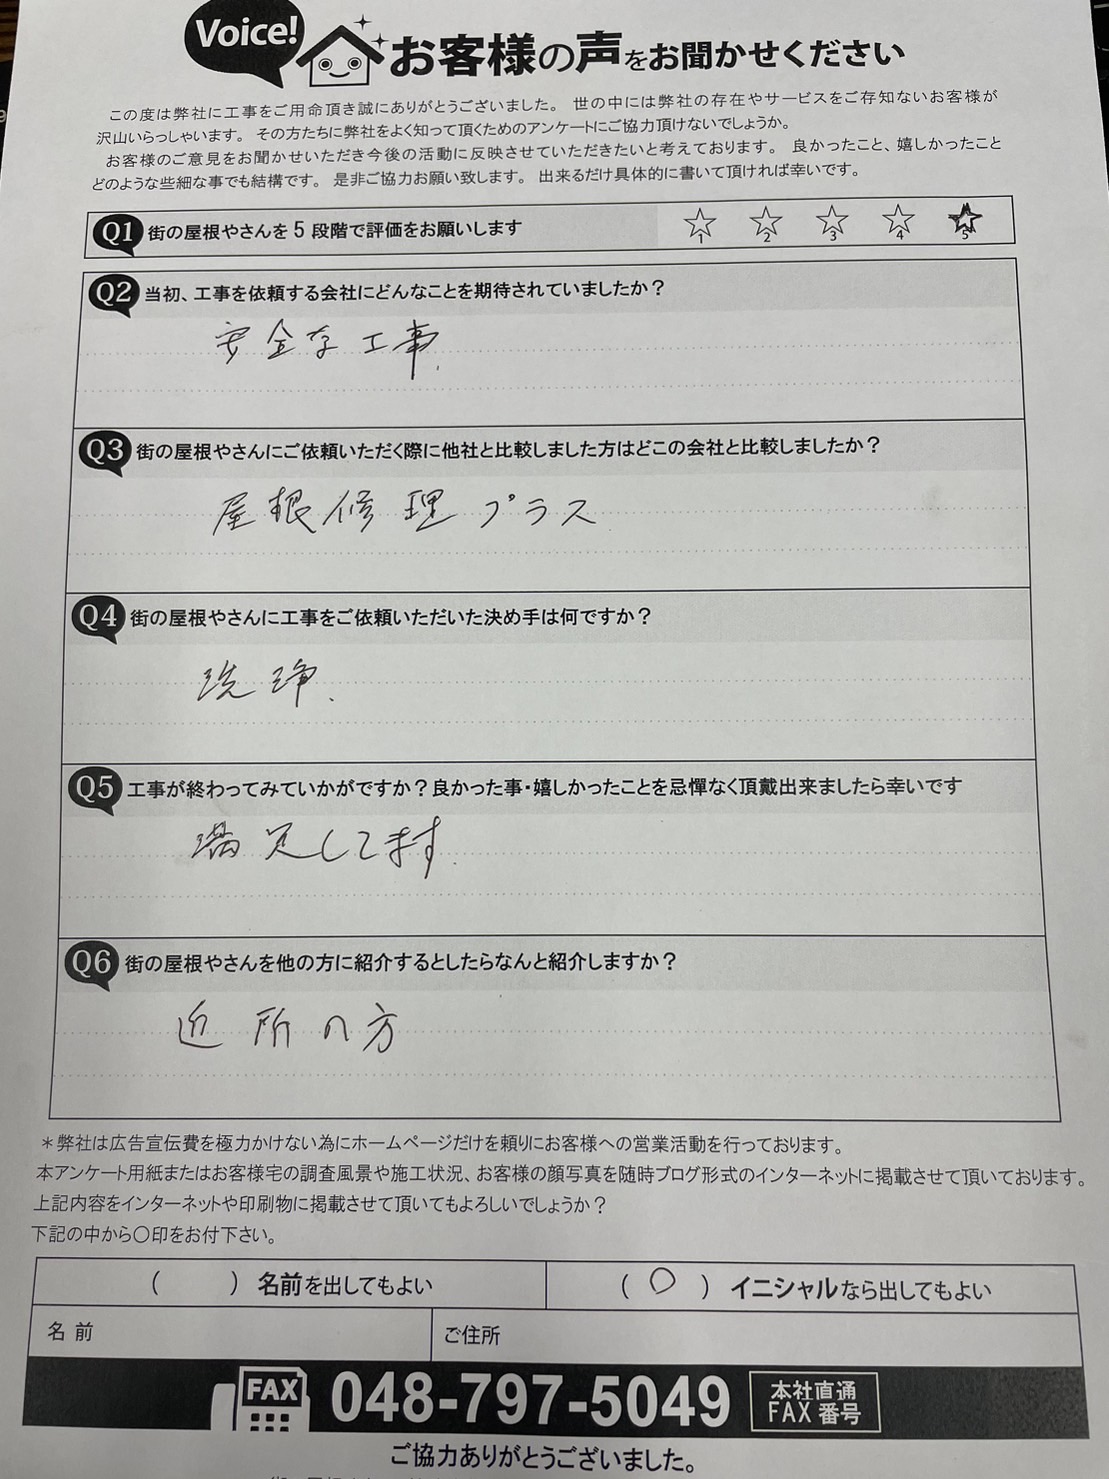 Voice! お客様の声をお聞かせください
この度は弊社に工事をご用命頂き誠にありがとうございました。 世の中には弊社の存在やサービスをご存知ないお客様が
沢山いらっしゃいます。 その方たちに弊社をよく知って頂くためのアンケートにご協力頂けないでしょうか。
お客様のご意見をお聞かせいただき今後の活動に反映させていただきたいと考えております。 良かったこと、嬉しかったこと
どのような些細な事でも結構です。 是非ご協力お願い致します。 出来るだけ具体的に書いて頂ければ幸いです。
Q1 街の屋根やさんを5段階で評価をお願いします 1 2 3 4 5
Q2 当初、工事を依頼する会社にどんなことを期待されていましたか？
安全な工事.
Q3 街の屋根やさんにご依頼いただく際に他社と比較しました方はどこの会社と比較しましたか？
屋根修理プラス
Q4 街の屋根やさんに工事をご依頼いただいた決め手は何ですか？
洗浄.
Q5 工事が終わってみていかがですか？良かった事・嬉しかったことを忌憚なく頂戴出来ましたら幸いです
満足してます.
Q6 街の屋根やさんを他の方に紹介するとしたらなんと紹介しますか？
近所の方
＊弊社は広告宣伝費を極力かけない為にホームページだけを頼りにお客様への営業活動を行っております。
本アンケート用紙またはお客様宅の調査風景や施工状況、お客様の顔写真を随時ブログ形式のインターネットに掲載させて頂いております。
上記内容をインターネットや印刷物に掲載させて頂いてもよろしいでしょうか？
下記の中から〇印をお付下さい。
（　　）名前を出してもよい （ ○ ）イニシャルなら出してもよい
名 前 ご住所
FAX 048-797-5049 本社直通 FAX 番号
ご協力ありがとうございました。